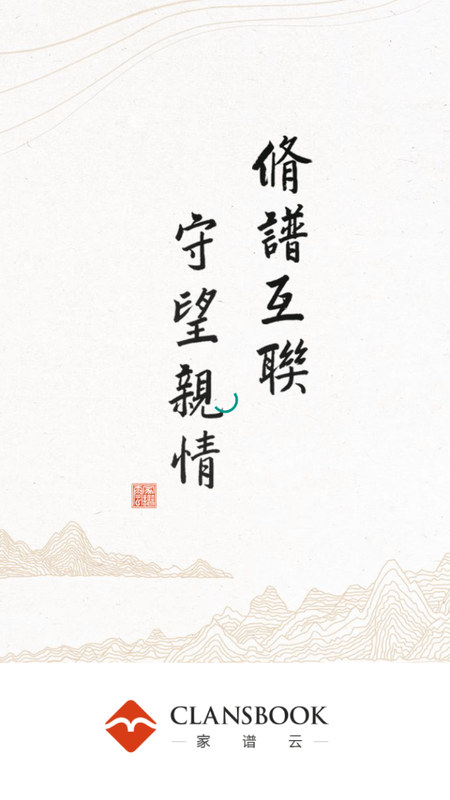 脩譜互聯
守望親情
CLANSBOOK
家谱云